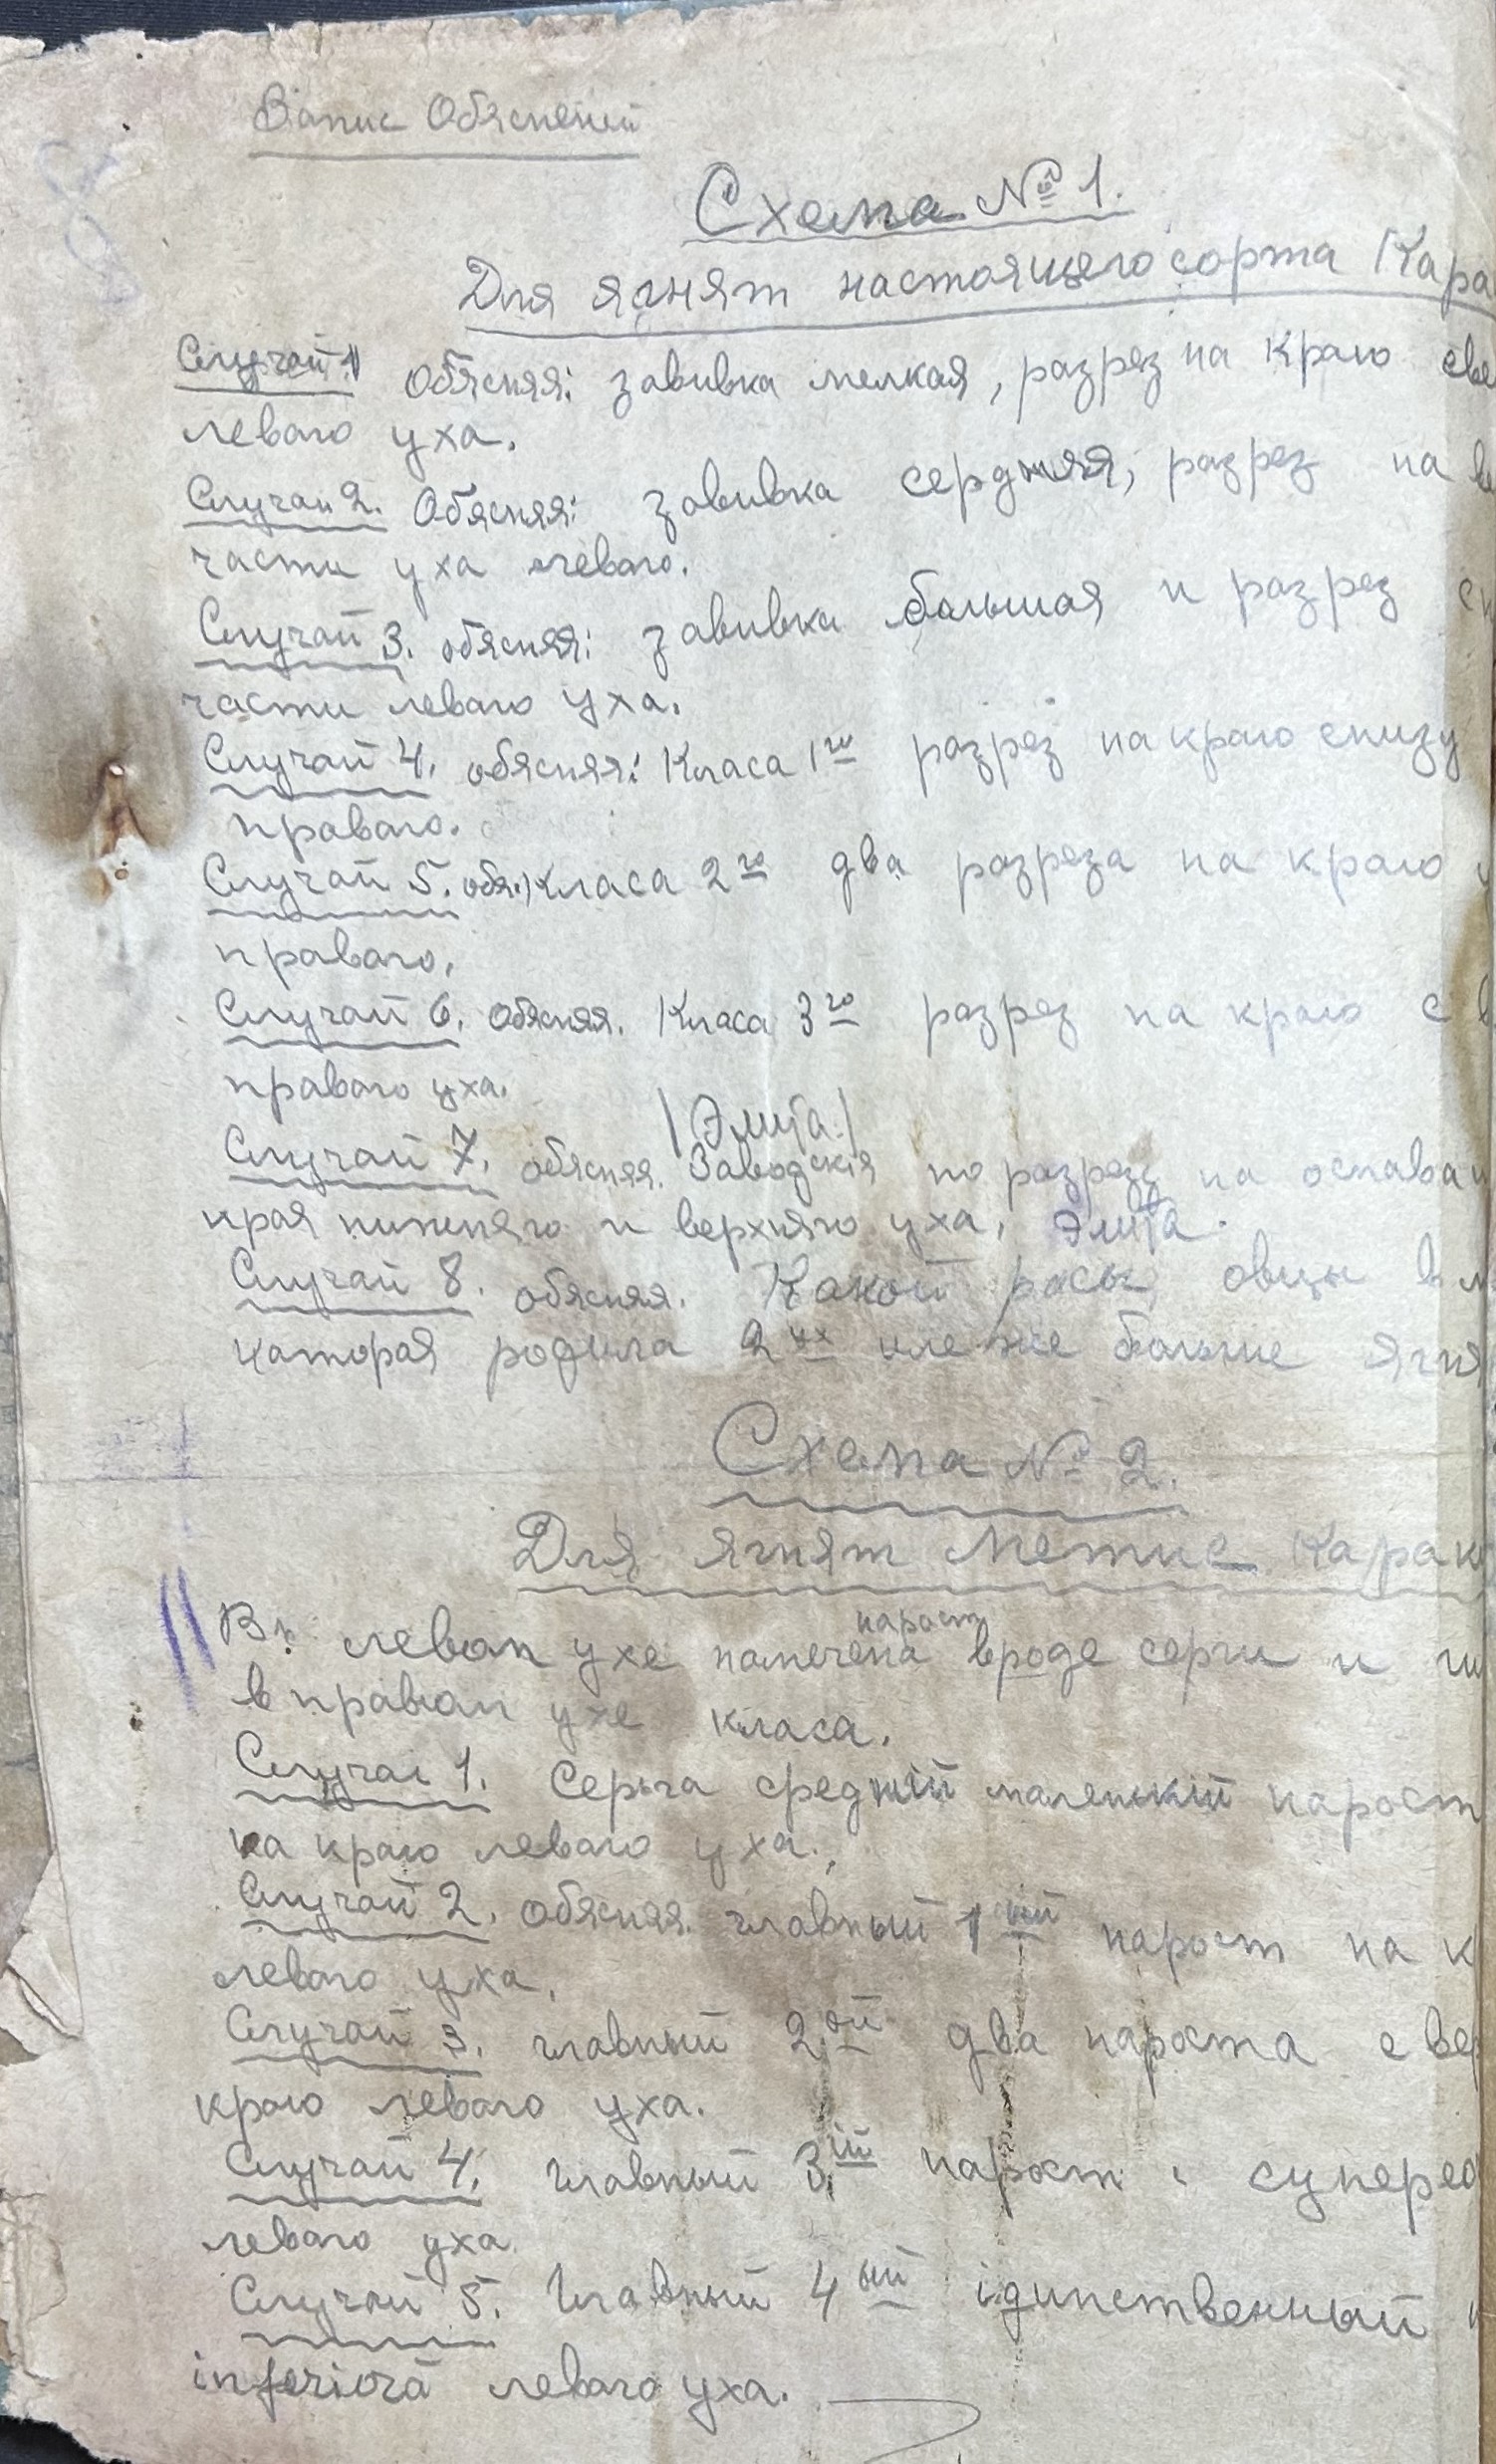 Запис Обяснений
Схема № 1.
Для ягнят настоящего сорта Кара
Случай 1 Обясняя: завивка мелкая, разрез на краю све
леваго уха.
Случай 2. Обясняя: завивка сердняя, разрез на в
части уха леваго.
Случай 3. обясняя: завивка большая и разрез сн
части леваго уха.
Случай 4. обясняя: Класа 1го разрез на краю снизу
праваго.
Случай 5. обя. Класа 2го два разреза на краю у
праваго.
Случай 6. Обясняя. Класа 3го разрез на краю с в
праваго уха.
|Элита.|
Случай 7. обясняя. Заводскія по разрезу на оснаван
края нижняго и верхняго уха, Элита.
Случай 8. обясняя. Какой расы овцы в м
каторая родила 2ух иле же больше ягня
Схема № 2.
Для ягнят Метис Карак
нарост
В леван ухе намечена вроде серги и
в праван ухе класа.
Случаі 1. Серьга средній маленькій нарост
на краю леваго уха.
Случай 2. обясняя. главный 1ый нарост на к
леваго уха.
Случай 3. главный 2ой два нароста с вер
краю леваго уха.
Случай 4. Главный 3ій нарост супереа
леваго уха.
Случай 5. Главный 4ый ідинственный н
inferioră леваго уха.